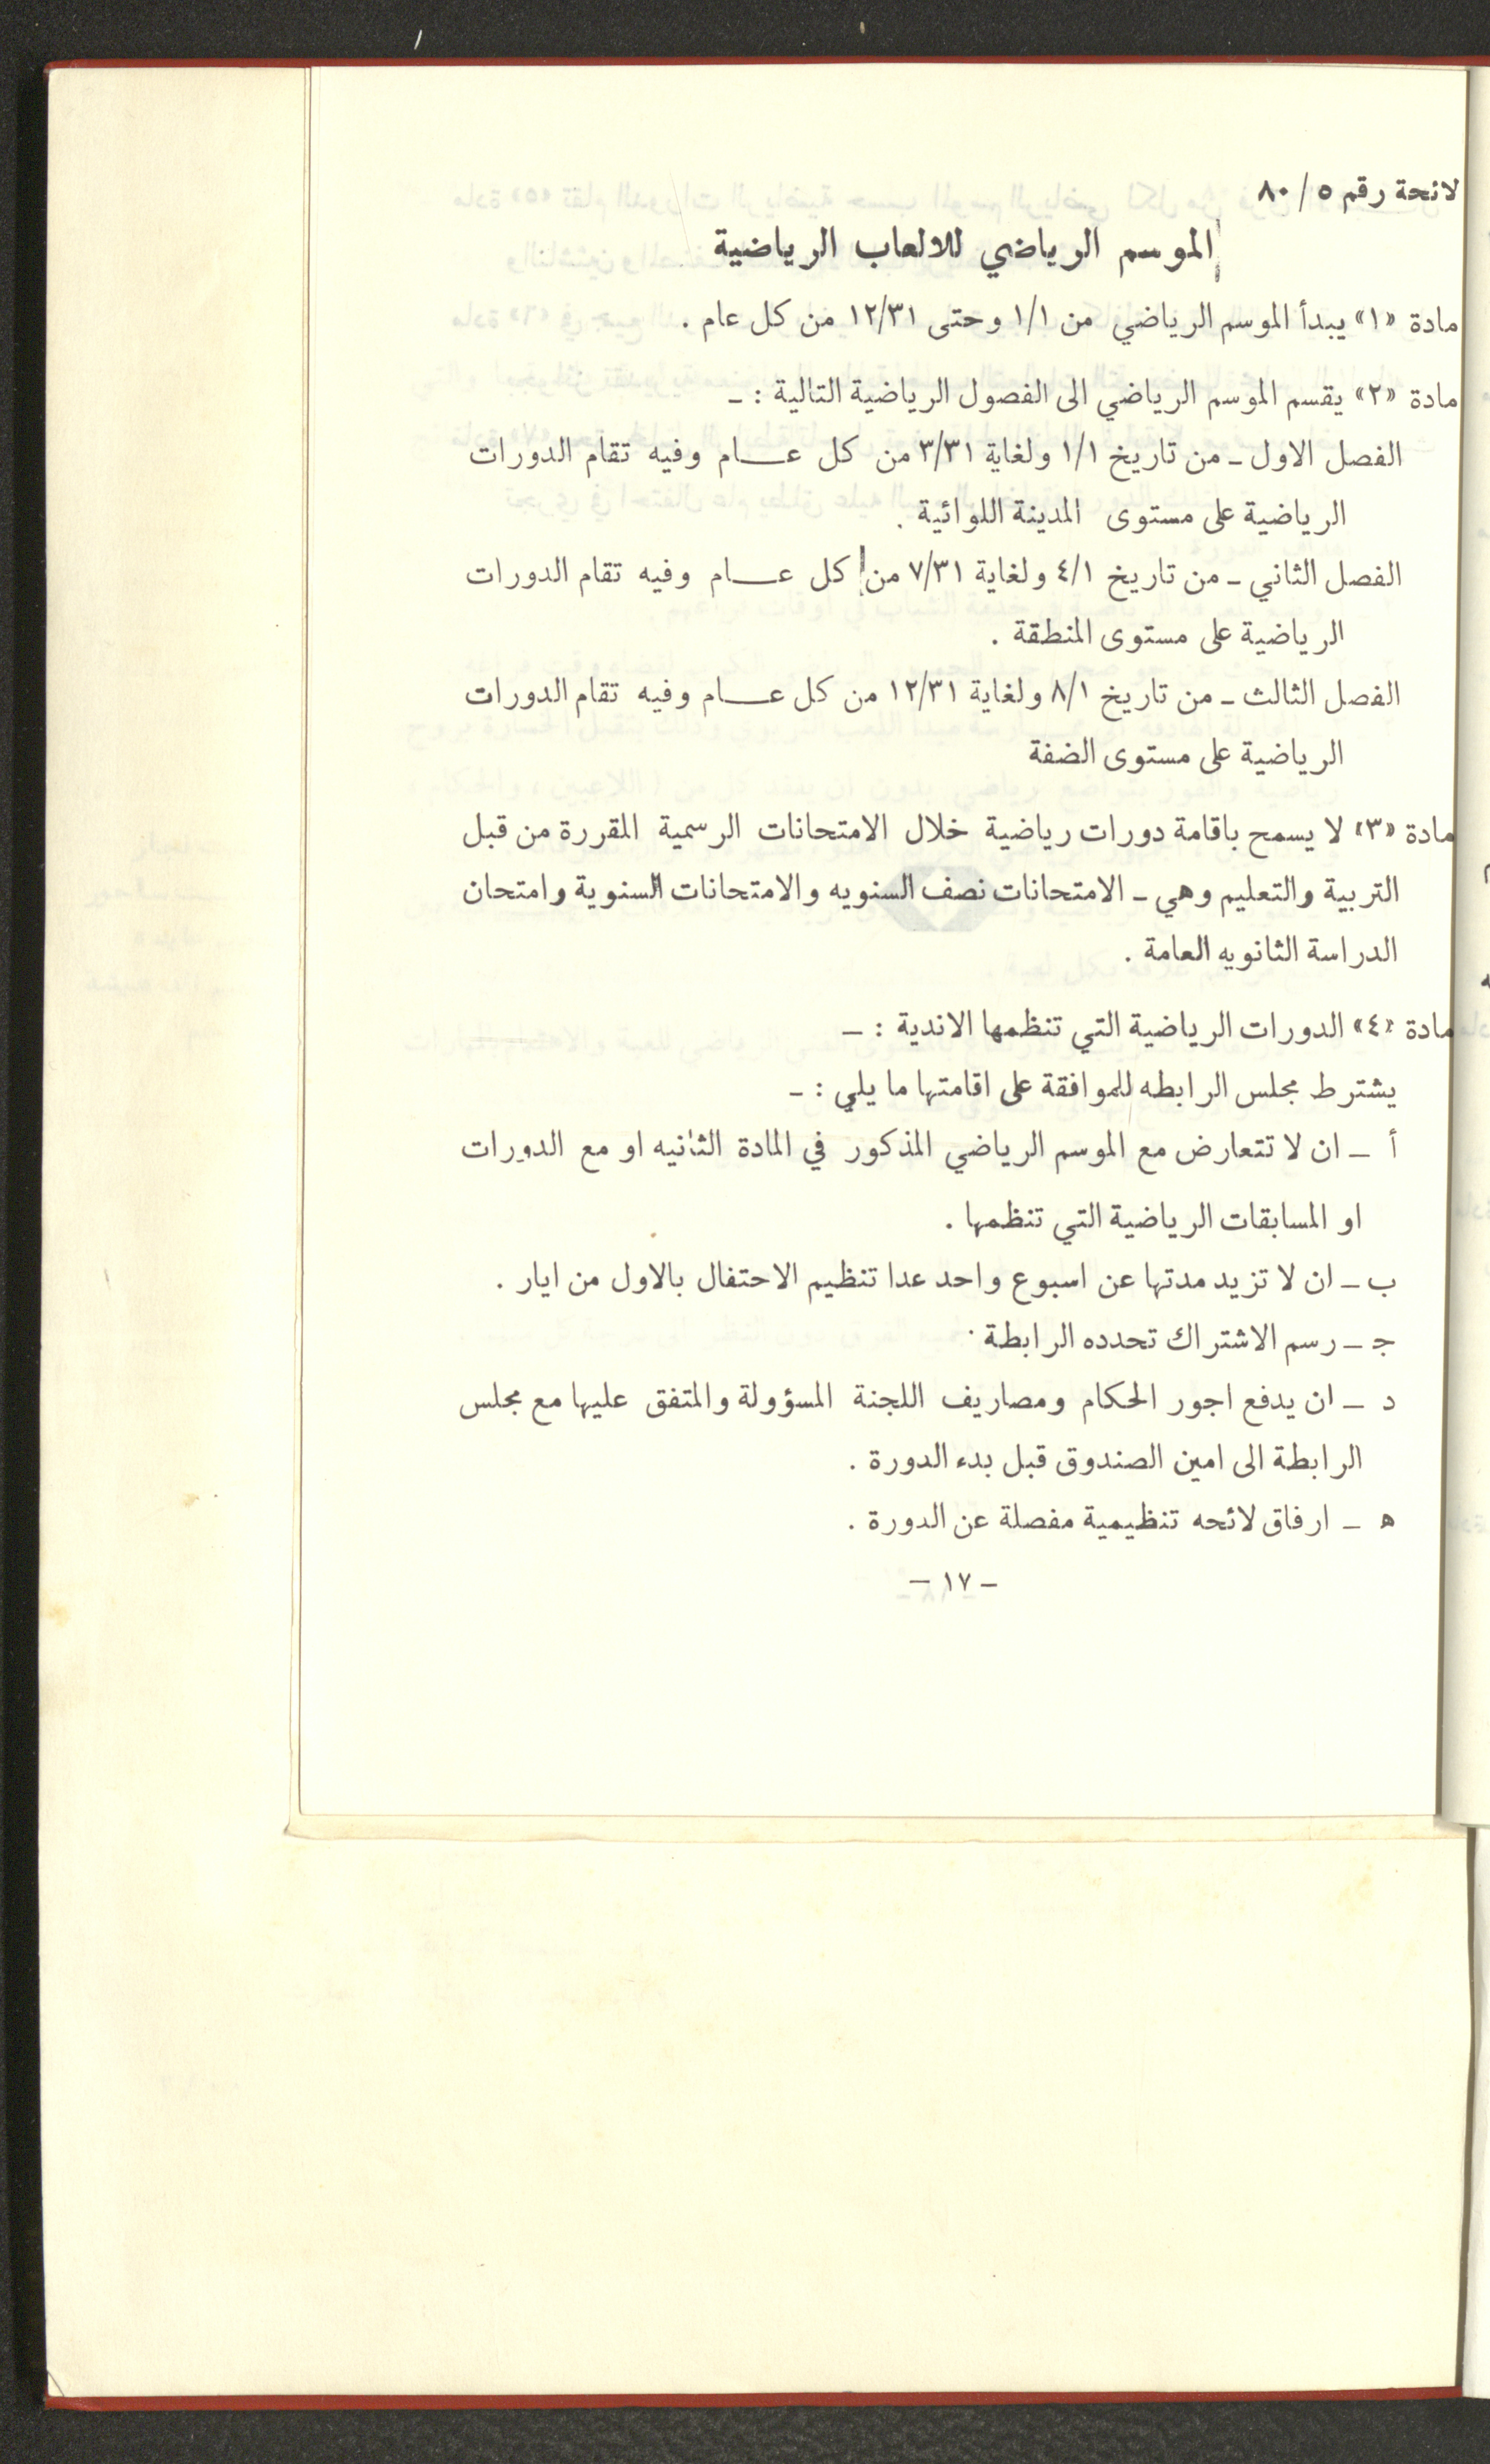 لائحة رقم ٥ / ٨٠
الموسم الرياضي للالعاب الرياضية
مادة «١» يبدأ الموسم الرياضي من ١/١ وحتى ١٢/٣١ من كل عام .
مادة «٢» يقسم الموسم الرياضي الى الفصول الرياضية التالية : ـ
الفصل الاول ـ من تاريخ ١/١ ولغاية ٣/٣١ من كل عــــام وفيه تقام الدورات
الرياضية على مستوى المدينة اللوائية .
الفصل الثاني ـ من تاريخ ٤/١ ولغاية ٧/٣١ من كل عــــام وفيه تقام الدورات
الرياضية على مستوى المنطقة .
الفصل الثالث ـ من تاريخ ٨/١ ولغاية ١٢/٣١ من كل عــــام وفيه تقام الدورات
الرياضية على مستوى الضفة
مادة «٣» لا يسمح باقامة دورات رياضية خلال الامتحانات الرسمية المقررة من قبل
التربية والتعليم وهي ـ الامتحانات نصف السنويه والامتحانات السنوية وامتحان
الدراسة الثانويه العامة .
مادة «٤» الدورات الرياضية التي تنظمها الاندية : ـ
يشترط مجلس الرابطه للموافقة على اقامتها ما يلي : ـ
أ ـ ان لا تتعارض مع الموسم الرياضي المذكور في المادة الثانيه او مع الدورات
او المسابقات الرياضية التي تنظمها .
ب ـ ان لا تزيد مدتها عن اسبوع واحد عدا تنظيم الاحتفال بالاول من ايار .
جـ ـ رسم الاشتراك تحدده الرابطة .
د ـ ان يدفع اجور الحكام ومصاريف اللجنة المسؤولة والمتفق عليها مع مجلس
الرابطة الى امين الصندوق قبل بدء الدورة .
ه ـ ارفاق لائحه تنظيمية مفصلة عن الدورة .
ـ ١٧ ـ